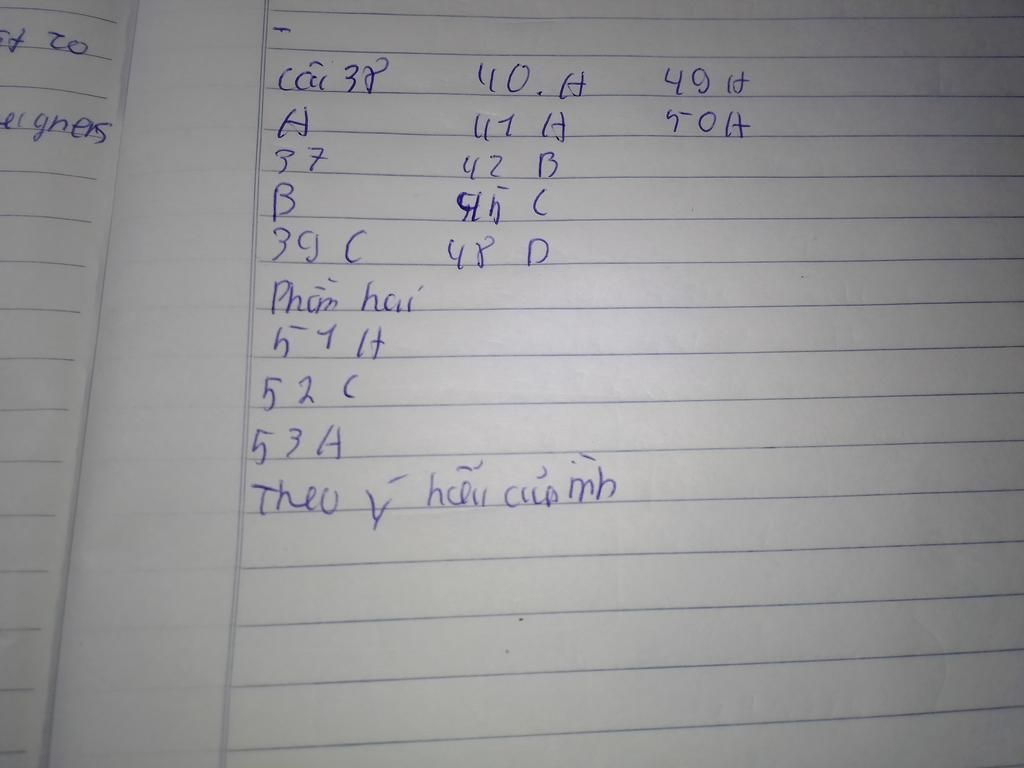 st 20
eigners
-
Câu 38 40. A 49 A
A 41 A 50 A
37 42 B
B C
39 C 48 D
Phần hai
51 A
52 C
53 A
Theo ý hiểu của mình